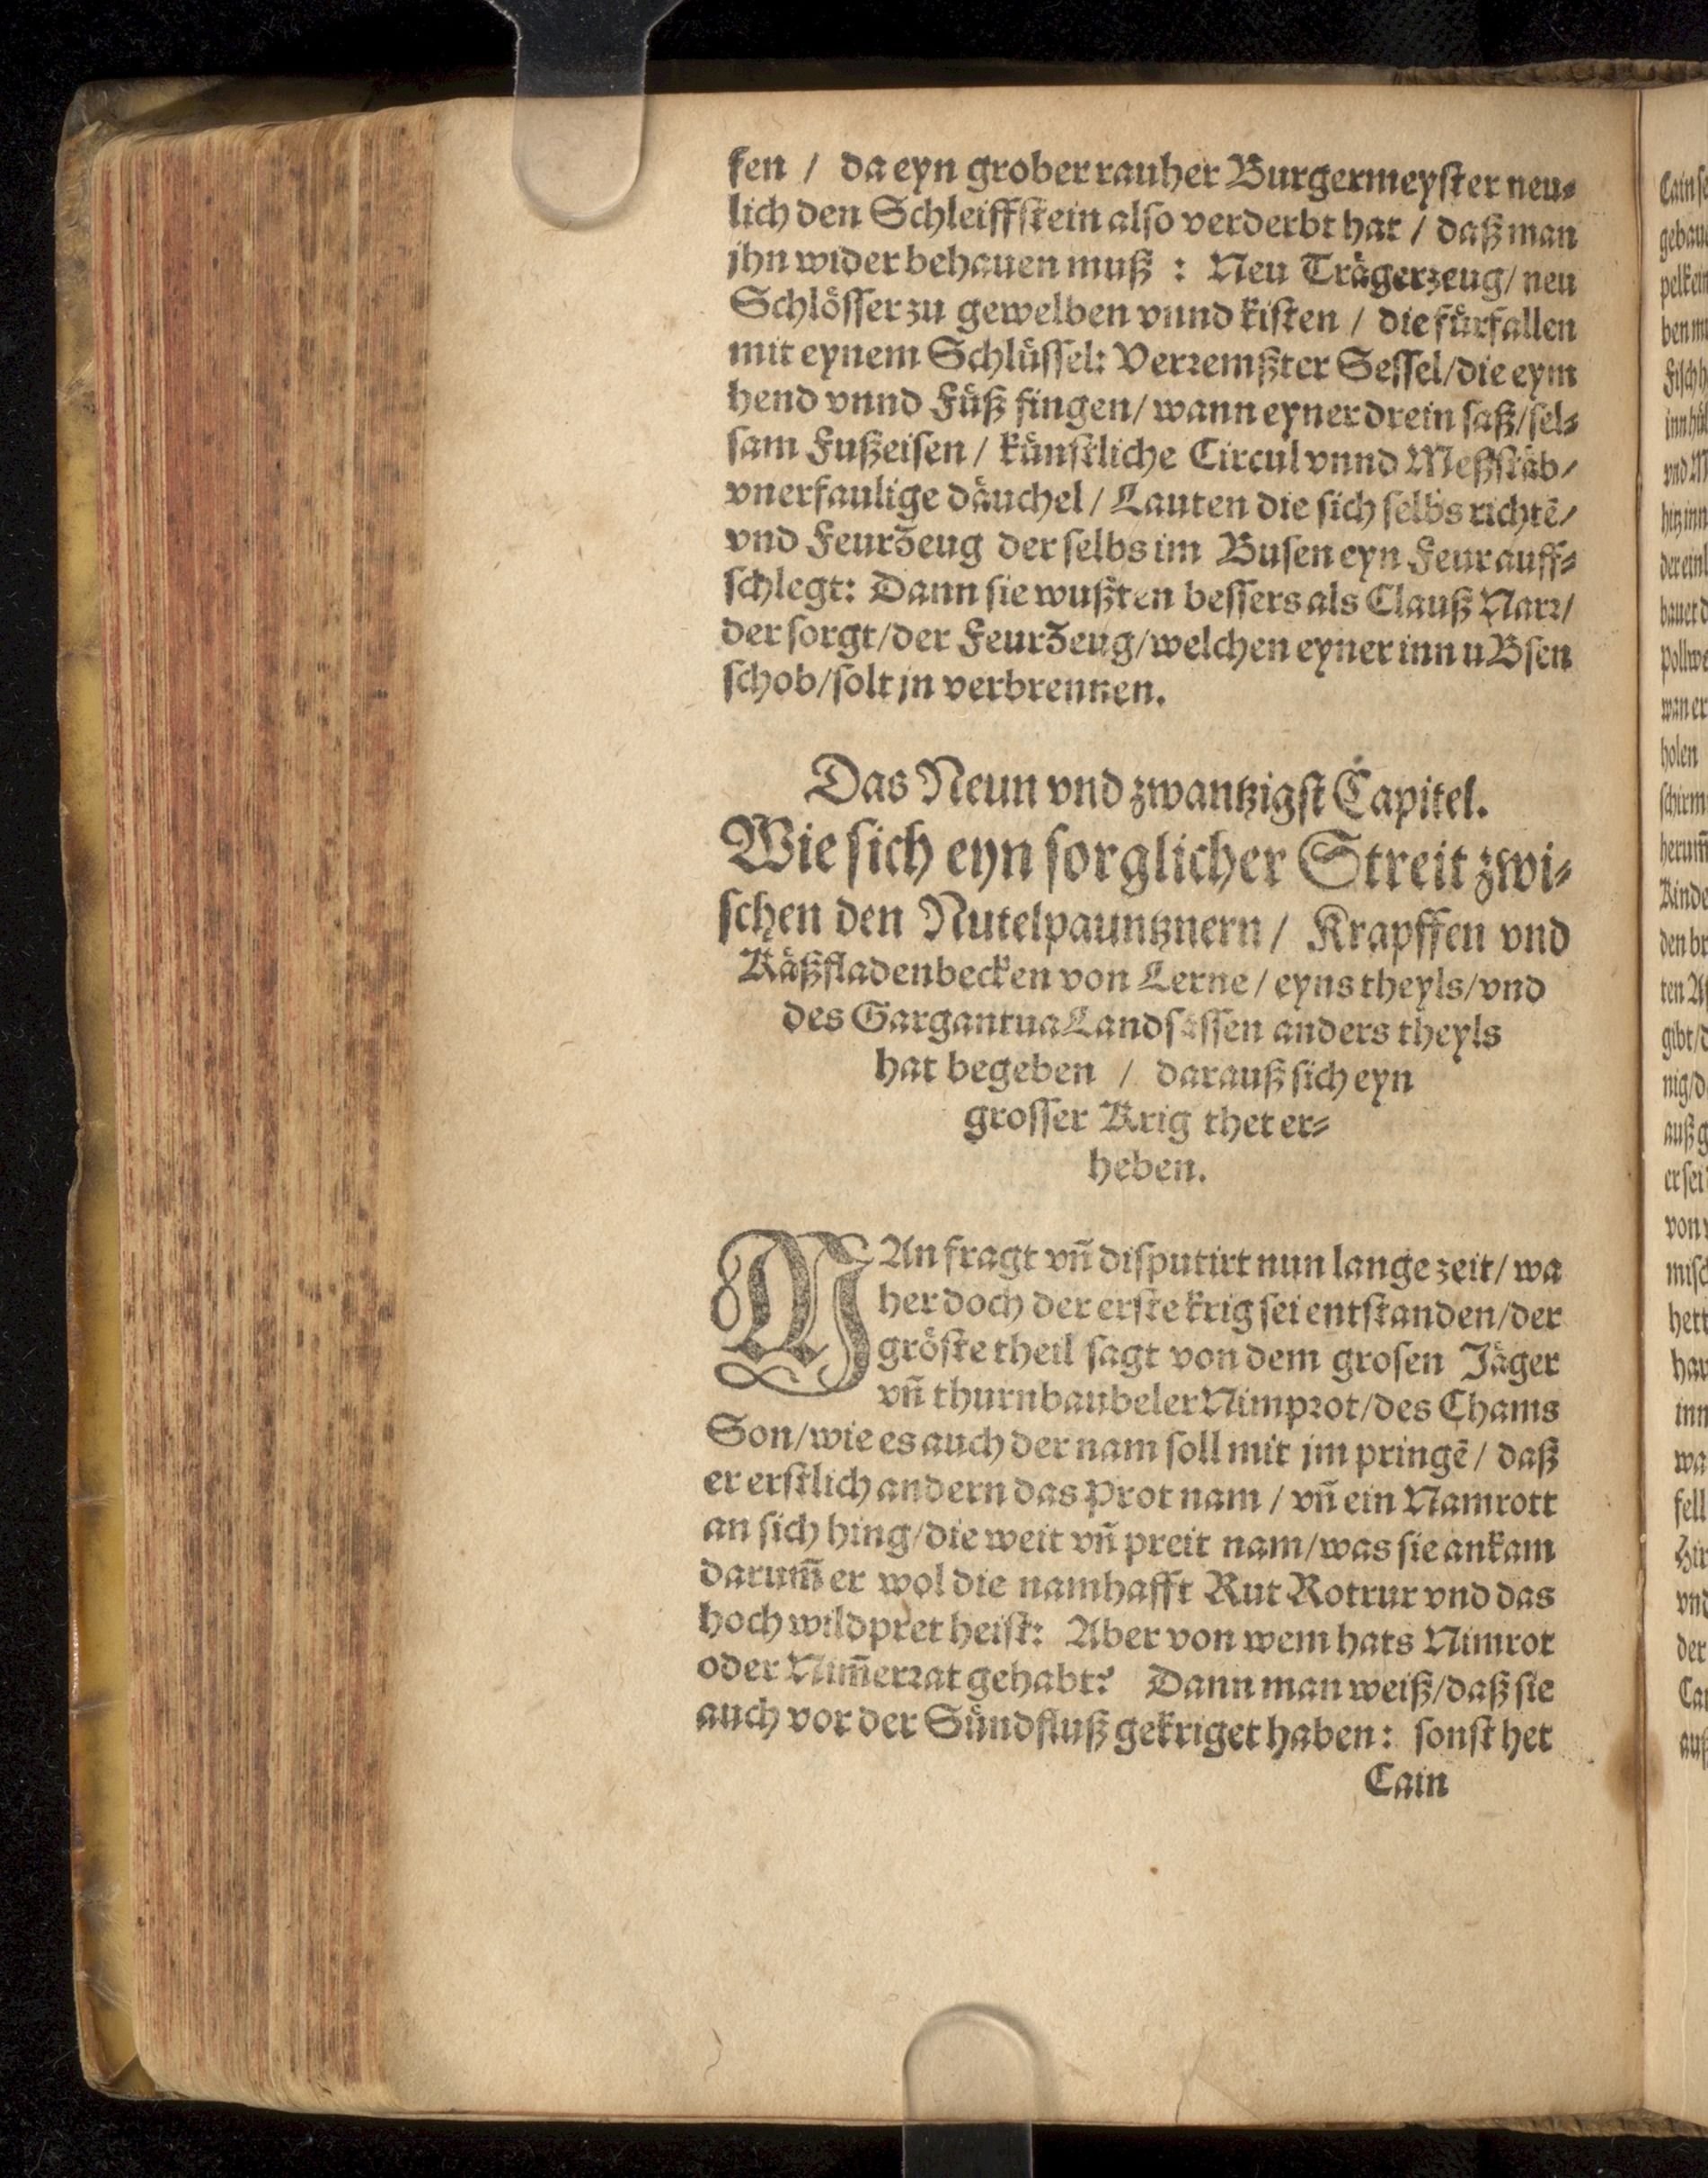 ken / da eyn grober rauher Burgermeyſter neu⸗
lich den Schleiffſtein alſo verderbt hat / daß man
jhn wider behauen muß : Neu Trägerzeug / neu
Schlöſſer zu gewelben vnnd kiſten / die fürfallen
mit eynem Schlüſſel: Verremßter Seſſel/die eym
hend vnnd Füß fingen/ wann eyner drein ſaß/ſel⸗
ſam Fußeiſen / künſtliche Circul vnnd Meßſtäb/
vnerfaulige däuchel / Lauten die ſich ſelbs richtē/
vnd Feurzeug der ſelbs im Buſen eyn Feur auff⸗
ſchlegt: Dann ſie wußten beſſers als Clauß Narr/
der ſorgt/der Feurzeug/welchen eyner inn uBſen
ſchob/ſolt jn verbrennen.
Das Neun vnd zwantzigſt Capitel.
Wie ſich eyn ſorglicher Streit zwi⸗
ſchen den Nutelpauntznern / Krapffen vnd
Käßfladenbecken von Lerne / eyns theyls/vnd
des Gargantua Landſäſſen anders theyls
hat begeben / darauß ſich eyn
groſſer Krig thet er⸗
heben.
MAn fragt vn̄ diſputirt nun lange zeit/ wa
her doch der erſte krig ſei entſtanden/der
gröſte theil ſagt von dem groſen Jäger
vn̄ thurnbaubeler Nimprot/des Chams
Son/wie es auch der nam ſoll mit jm pringē/ daß
er erſtlich andern das Prot nam / vn̄ ein Namrott
an ſich hing/die weit vn̄ preit nam/was ſie ankam
darum̄ er wol die namhafft Rut Rotrur vnd das
hoch wildpret heiſt: Aber von wem hats Nimrot
oder Nim̄errat gehabt? Dann man weiß/daß ſie
auch vor der Sündfluß gekriget haben: ſonſt het
Cain